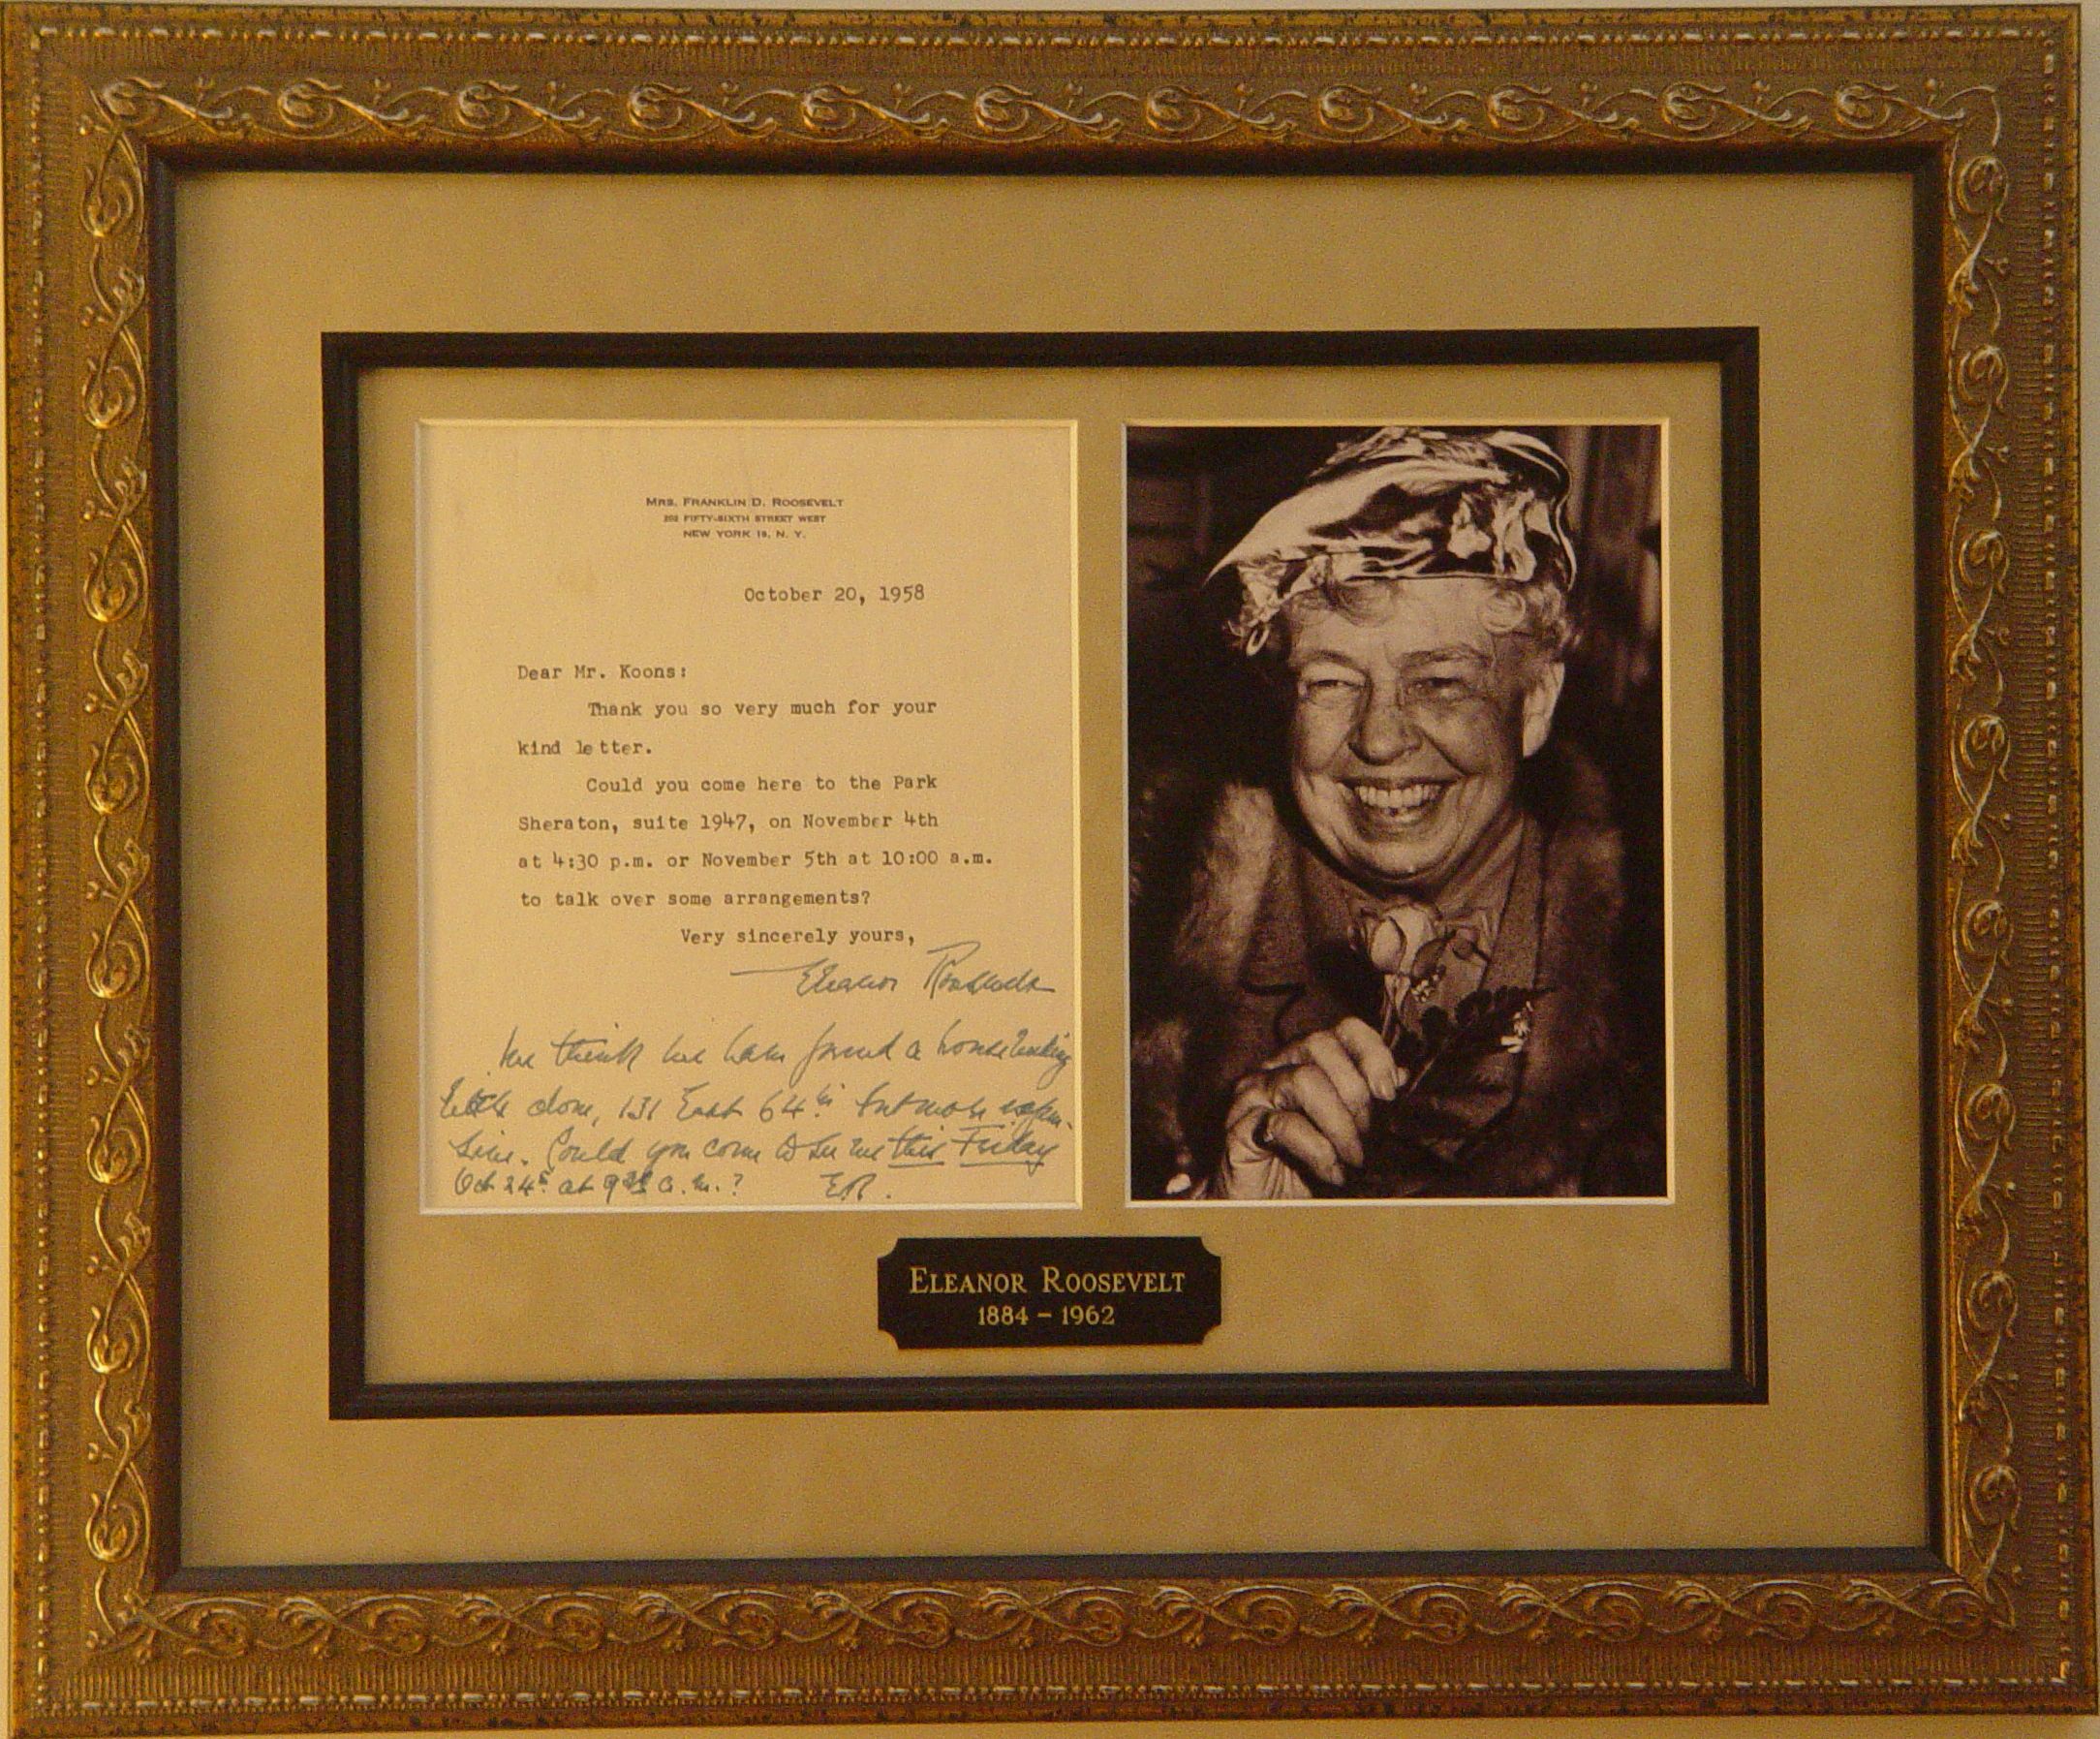 MRS. FRANKLIN D. ROOSEVELT
202 FIFTY-SIXTH STREET WEST
NEW YORK 19, N. Y.
October 20, 1958
Dear Mr. Koons:
Thank you so very much for your
kind letter.
Could you come here to the Park
Sheraton, suite 1947, on November 4th
at 4:30 p.m. or November 5th at 10:00 a.m.
to talk over some arrangements?
Very sincerely yours,
Eleanor Roosevelt
We think we have found a house
131 East 64th but more expen-
sive. Could you come to see me this Friday
Oct 24th at 9 a.m.? E.R.
ELEANOR ROOSEVELT
1884 – 1962